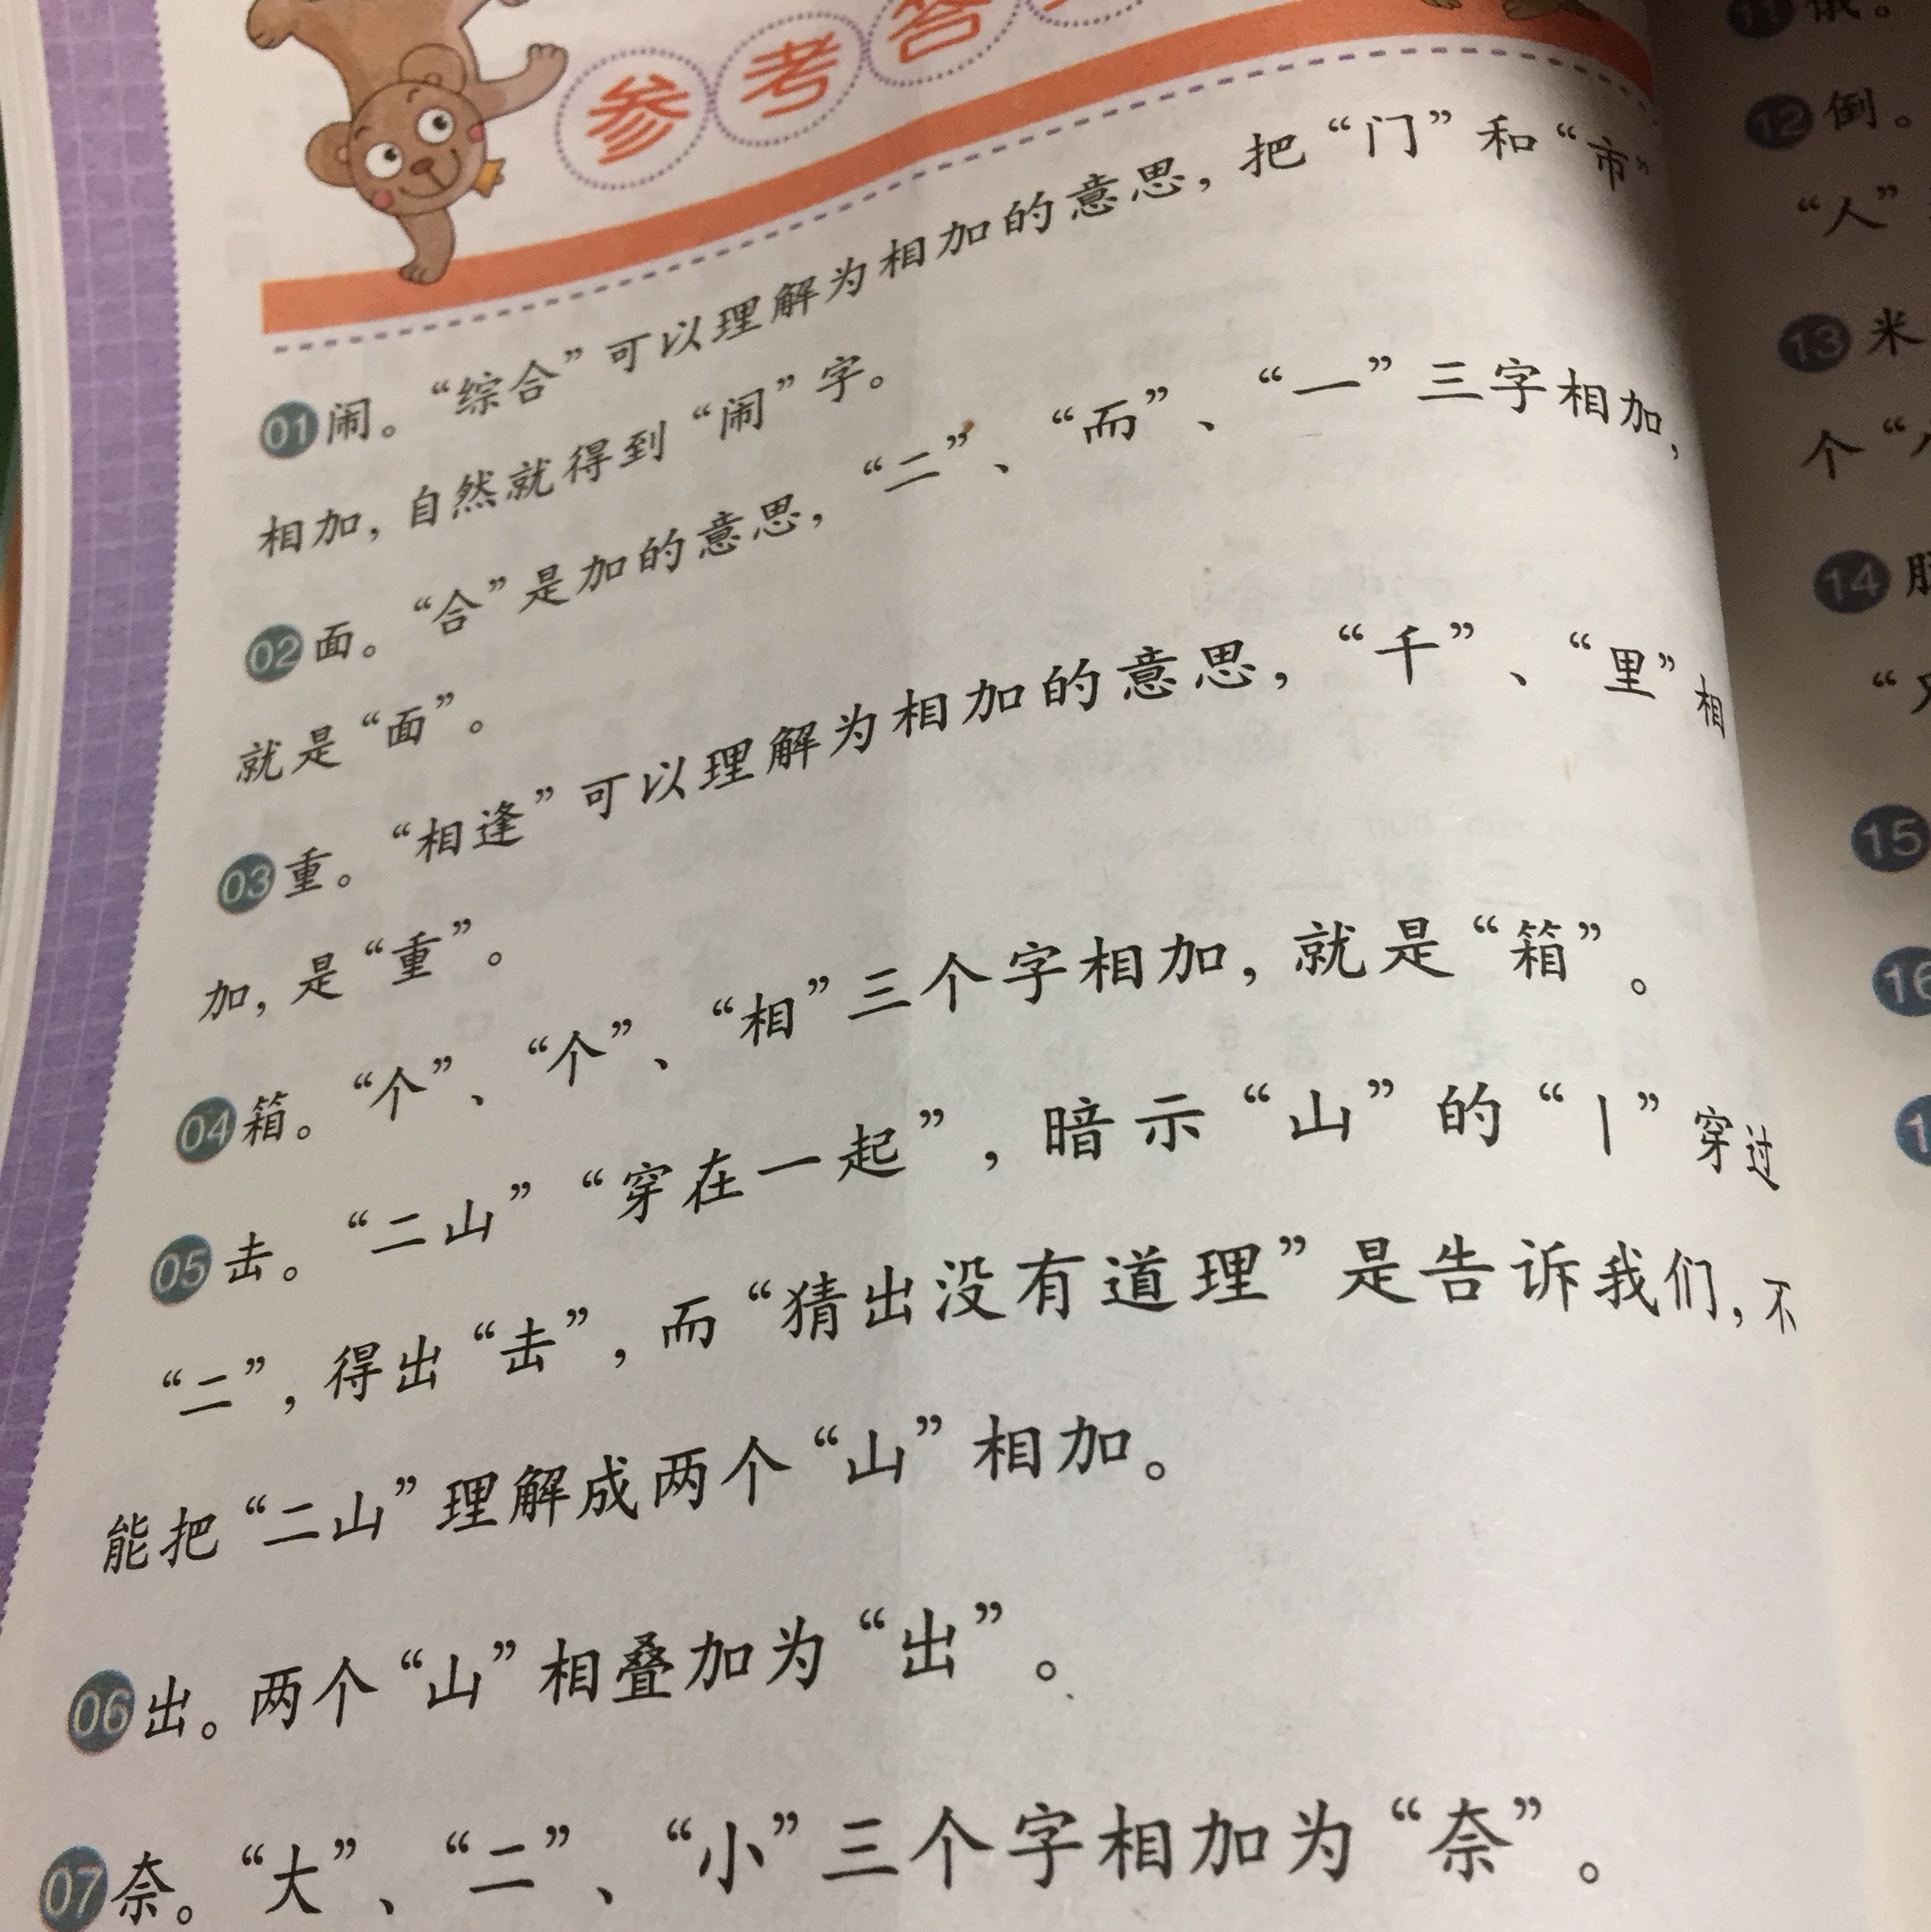 参考答
01 闹。“综合”可以理解为相加的意思，把“门”和“市”
相加，自然就得到“闹”字。
02 面。“合”是加的意思，“二”、“而”、“一”三字相加，
就是“面”。
03 重。“相逢”可以理解为相加的意思，“千”、“里”相
加，是“重”。
04 箱。“个”、“个”、“相”三个字相加，就是“箱”。
05 击。“二山”“穿在一起”，暗示“山”的“丨”穿过
“二”，得出“击”，而“猜出没有道理”是告诉我们，不
能把“二山”理解成两个“山”相加。
06 出。两个“山”相叠加为“出”。
07 奈。“大”、“二”、“小”三个字相加为“奈”。
11
12 倒。
“人”
13 米
个“
14
15
16